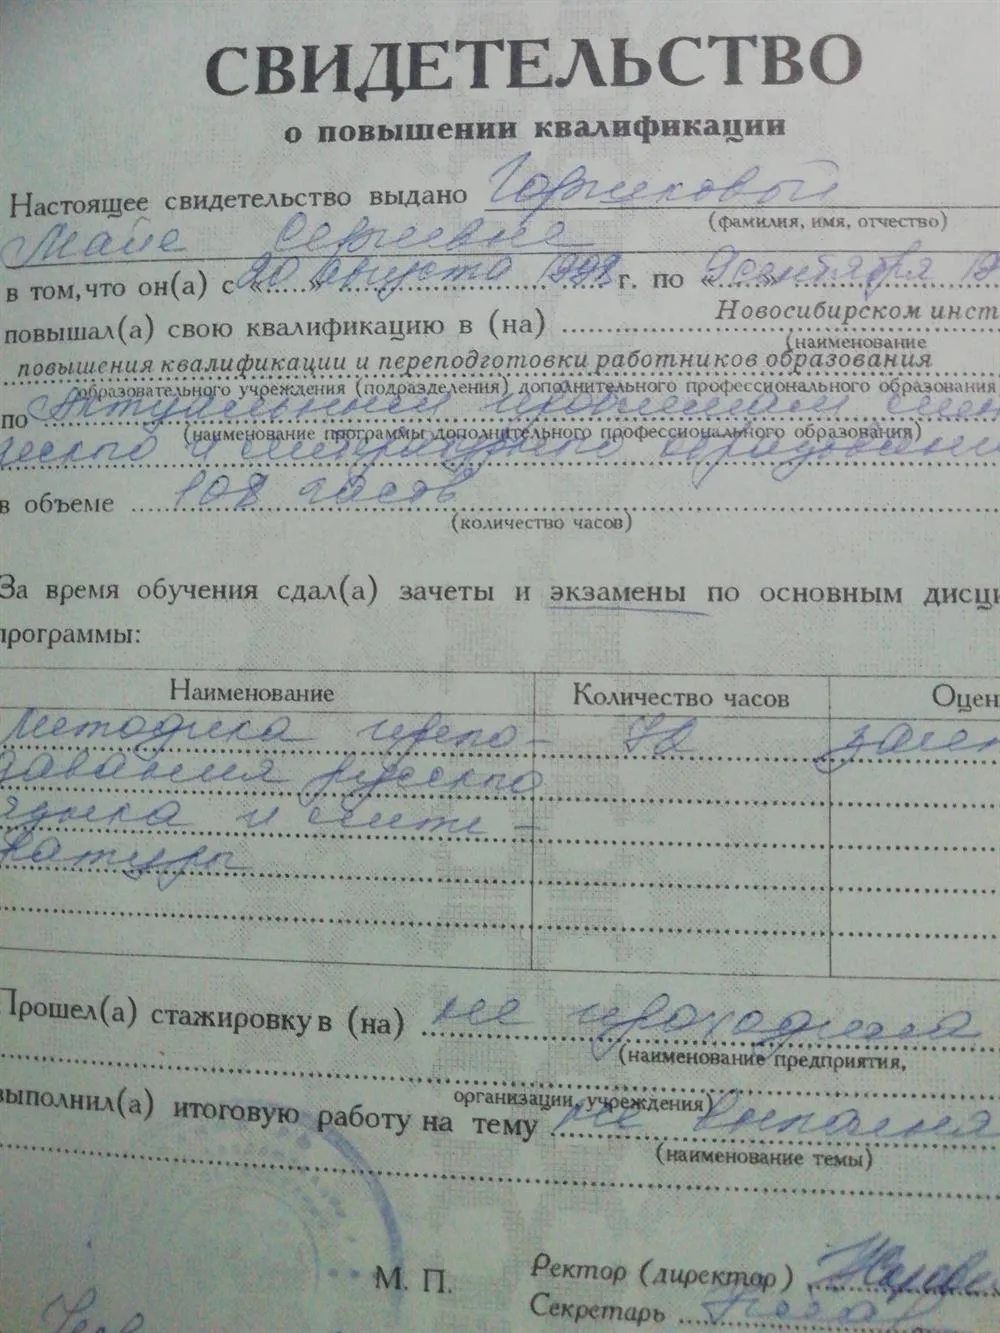 СВИДЕТЕЛЬСТВО
о повышении квалификации
Настоящее свидетельство выдано Горшковой
(фамилия, имя, отчество)
Майе Сергеевне
в том, что он(а) с «20» августа 1998 г. по «9» сентября 19
повышал(а) свою квалификацию в (на) Новосибирском инст
(наименование
повышения квалификации и переподготовки работников образования
образовательного учреждения (подразделения) дополнительного профессионального образования
по Актуальным проблемам
(наименование программы дополнительного профессионального образования)
ческого и литературного образовани
в объеме 108 часов
(количество часов)
За время обучения сдал(а) зачеты и экзамены по основным дисци
программы:
Наименование Количество часов Оцен
Методика препо- 72 зачет
давания русского
языка и лите-
ратуры
Прошел(а) стажировку в (на) не проходила
(наименование предприятия,
организации, учреждения)
выполнил(а) итоговую работу на тему не выполня
(наименование темы)
М. П.
Ректор (директор)
Секретарь